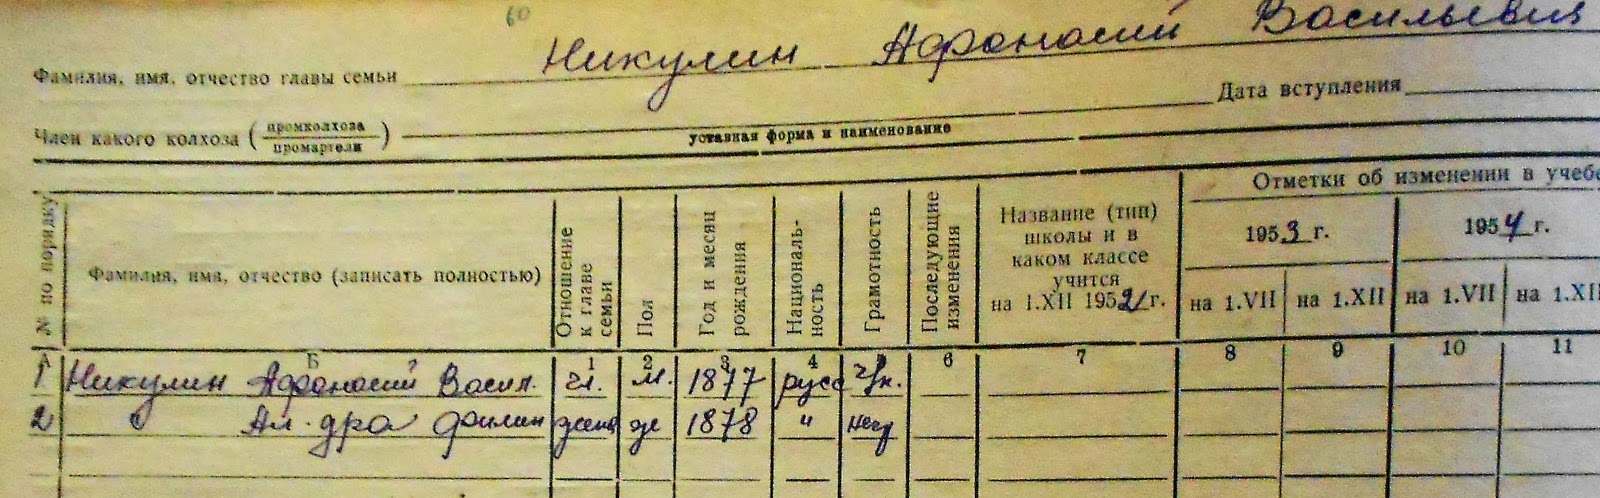 60
Никулин Афонасий Васильевич
Фамилия, имя, отчество главы семьи
Дата вступления
Член какого колхоза (промколхоза / промартели)
уставная форма и наименование
Отметки об изменении в учебе
№ по порядку
Фамилия, имя, отчество (записать полностью)
Отношение к главе семьи
Пол
Год и месяц рождения
Националь-ность
Грамотность
Последующие изменения
Название (тип) школы и в каком классе учится на 1.XII 1952 г.
1953 г.
1954 г.
на 1.VII
на 1.XII
на 1.VII
на 1.XII
А Б 1 2 3 4 5 6 7 8 9 10 11
1 Никулин Афонасий Васил. гл. м. 1877 русс
2 " Ал-дра Филип жена ж 1878 " негр